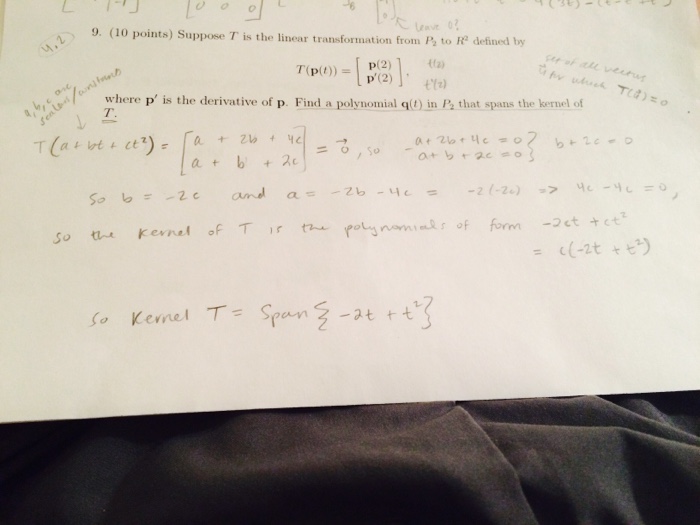 0 0 0
leave 0!
4.2
9. (10 points) Suppose T is the linear transformation from P₂ to R² defined by
T(p(t)) = [ p(2)
p′(2) ],
set of all vectors
for which T(x) = 0
a, b, c are
scalars/constants
where p′ is the derivative of p. Find a polynomial q(t) in P₂ that spans the kernel of
T.
T(a + bt + ct²) = [ a + 2b + 4c
a + b + 2c ] = 0⃗, so
a + 2b + 4c = 0
- a + b + 2c = 0 } b + 2c = 0
So b = -2c and a = -2b - 4c = -2(-2c) => 4c - 4c = 0,
so the kernel of T is the polynomials of form -2ct + ct²
= c(-2t + t²)
So Kernel T = Span { -2t + t² }